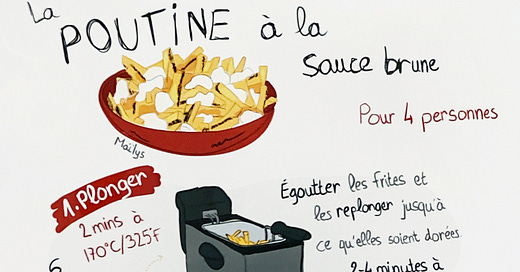 La
POUTINE à la
sauce brune
Pour 4 personnes
Maïlys
1. Plonger
2 mins à
170°C/325°F
Égoutter les frites et
les replonger jusqu'à
ce qu'elles soient dorées.
2-4 minutes à
6